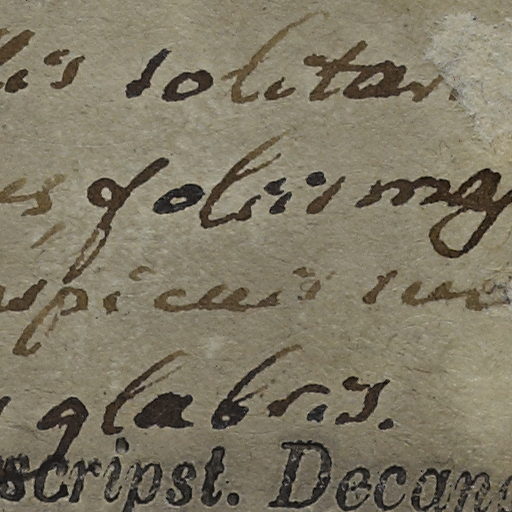 lis solitar
es, foliis maj
spicuis su
glabris.
scripst. Decand